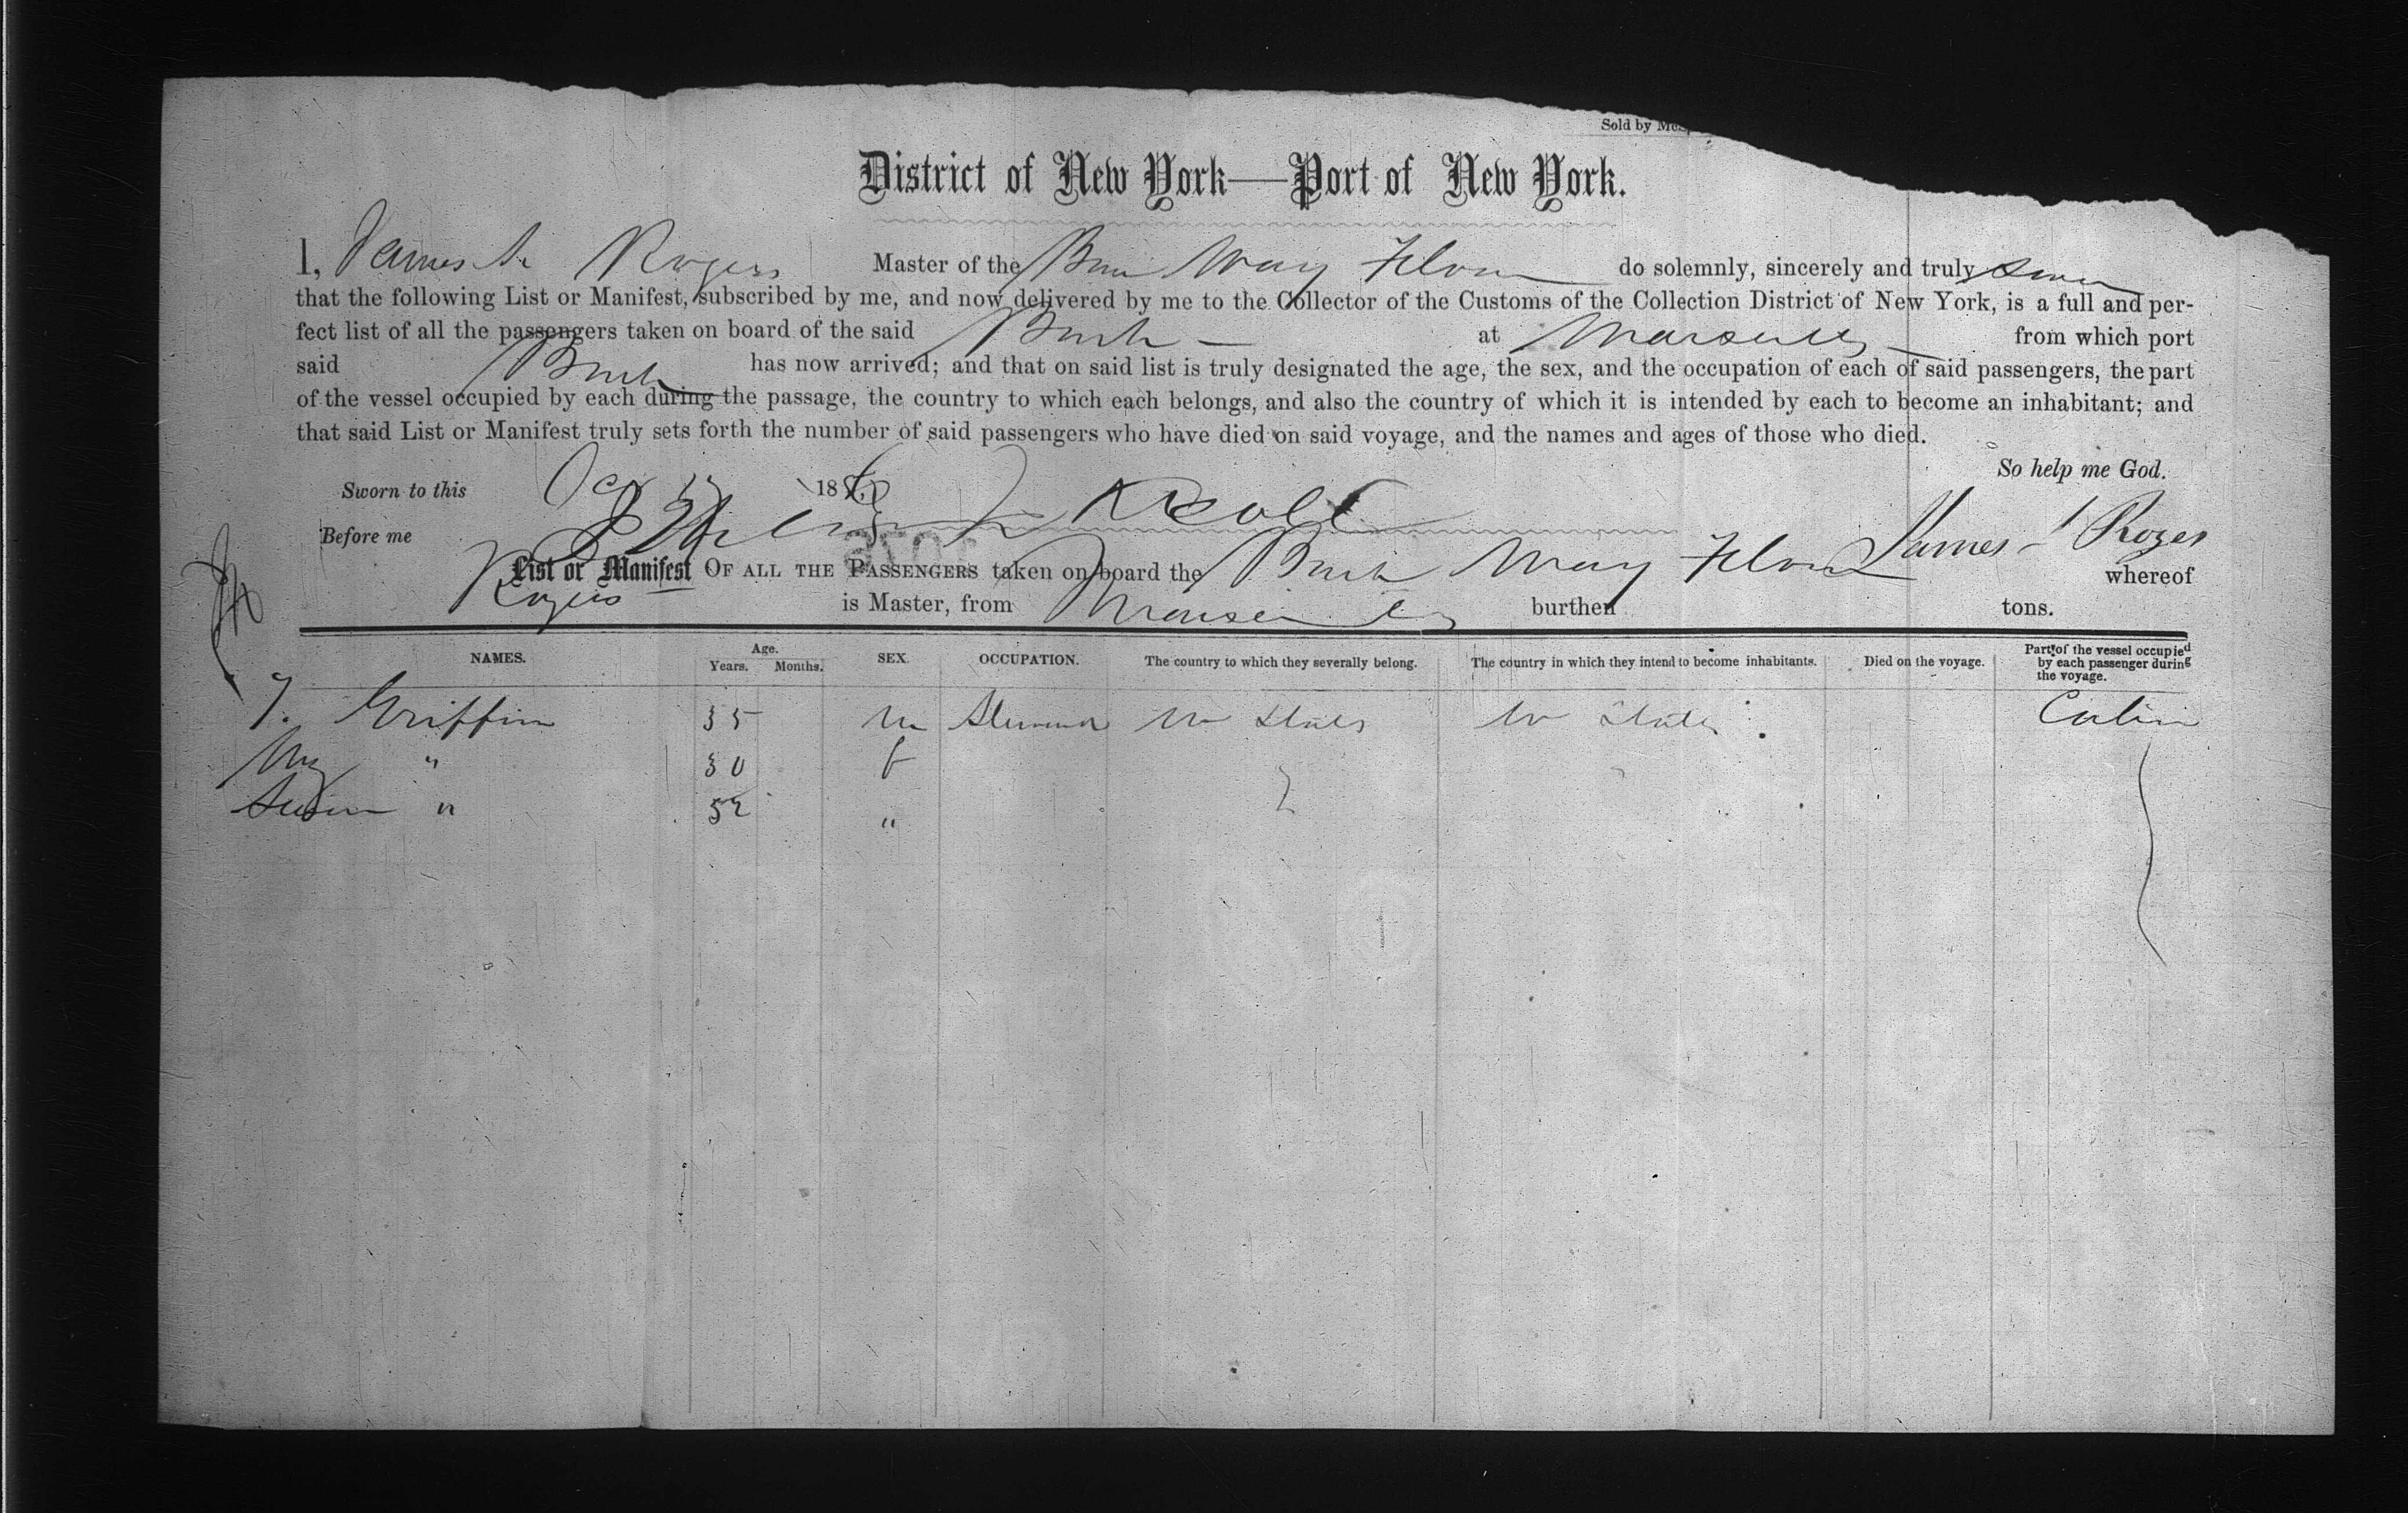 Sold by
District of New York—Port of New York.
I, James Rogers Master of the May Flower do solemnly, sincerely and truly swear
that the following List or Manifest, subscribed by me, and now delivered by me to the Collector of the Customs of the Collection District of New York, is a full and per-
fect list of all the passengers taken on board of the said Bark — at Marseilles — from which port
said Bark has now arrived; and that on said list is truly designated the age, the sex, and the occupation of each of said passengers, the part
of the vessel occupied by each during the passage, the country to which each belongs, and also the country of which it is intended by each to become an inhabitant; and
that said List or Manifest truly sets forth the number of said passengers who have died on said voyage, and the names and ages of those who died.
So help me God.
Sworn to this 18
Before me James Roger
List or Manifest OF ALL THE PASSENGERS taken on board the Bark May Flower whereof
Rogers is Master, from Marseilles burthen tons.
NAMES. Age. Years. Months. SEX. OCCUPATION. The country to which they severally belong. The country in which they intend to become inhabitants. Died on the voyage. Part of the vessel occupied by each passenger during the voyage.
Griffin 35 m U States U States Cabin
" 30 f
" 52 "